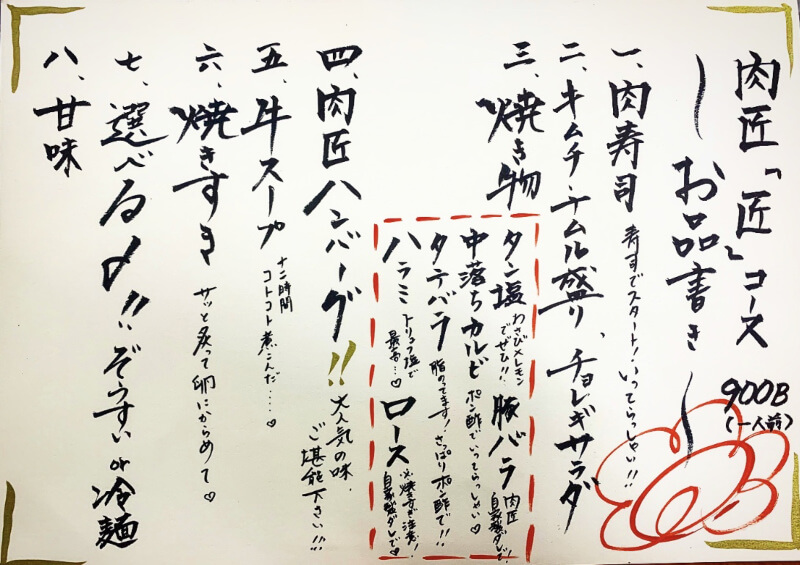 肉匠「匠」コース
900B
(一人前)
〜お品書き〜
一、肉寿司 寿司でスタート!いってらっしゃい!!
二、キムチ・ナムル盛り、チョレギサラダ
三、焼き物
タン塩 わさび×レモンでぜひ!!
豚バラ 肉匠自家製ダレで!
中落ちカルビ ポン酢でいってらっしゃい♡
タテバラ 脂のってます!さっぱりポン酢で!!
ハラミ トリュフ塩で最高…♡
ロース ※焼き方が注意!自家製ダレで♡
四、肉匠ハンバーグ!!大人気の味、ご堪能下さい!!!
五、牛スープ 十二時間コトコト煮こんだ…♡
六、焼きすき サッと炙って卵にからめて♡
七、選べる〆!!ぞうすい or 冷麺
八、甘味